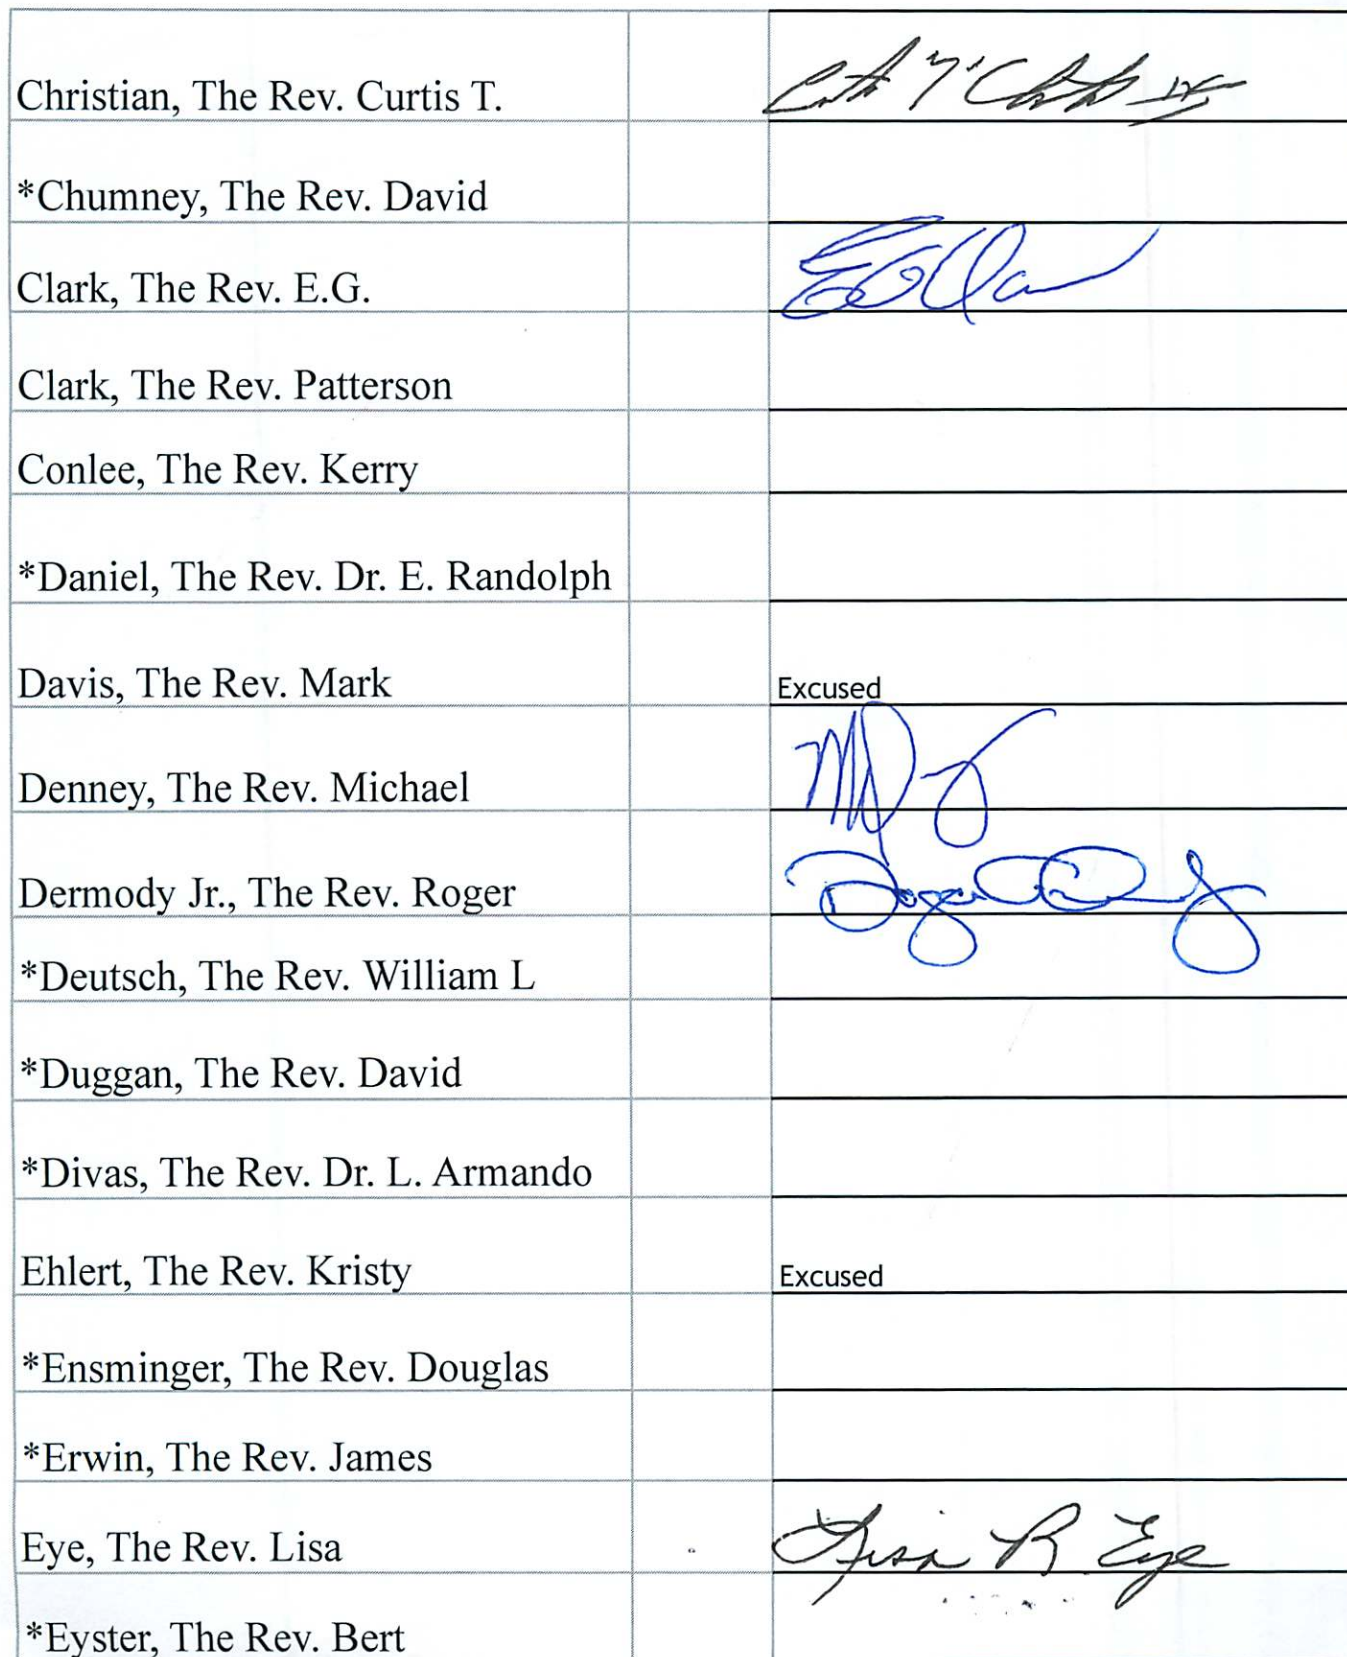 Christian, The Rev. Curtis T.
*Chumney, The Rev. David
Clark, The Rev. E.G.
Clark, The Rev. Patterson
Conlee, The Rev. Kerry
*Daniel, The Rev. Dr. E. Randolph
Davis, The Rev. Mark Excused
Denney, The Rev. Michael
Dermody Jr., The Rev. Roger
*Deutsch, The Rev. William L
*Duggan, The Rev. David
*Divas, The Rev. Dr. L. Armando
Ehlert, The Rev. Kristy Excused
*Ensminger, The Rev. Douglas
*Erwin, The Rev. James
Eye, The Rev. Lisa Lisa R Eye
*Eyster, The Rev. Bert